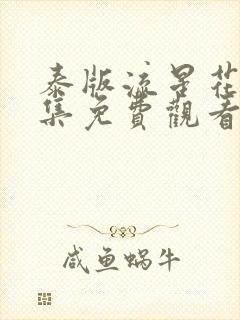 泰版流星花
集免費觀看
咸鱼蜗牛